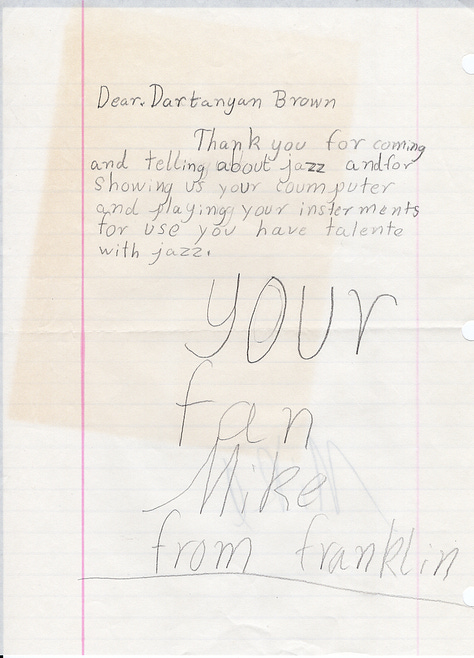 Dear. Dartanyan Brown
Thank you for coming
and telling about jazz andfor
showing us your coumputer
and playing your insterments
for use you have talente
with jazz.
your
fan
Mike
from franklin